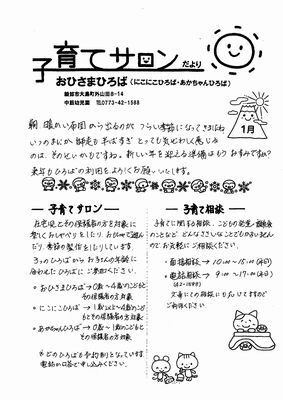 子育てサロンだより
おひさまひろば（にこにこひろば・あかちゃんひろば）
綾部市大島町外山田8-14
中筋幼児園 TEL0773-42-1588
1月
朝 暖かい布団から出るのが つらい季節になってきましたね
いつのまにか 師走も 半ばすぎ とっても 気ぜわしく 感じる
のは、そのせいかもですね。新しい年を 迎える 準備は もう おすみですか？
来年も ひろばの利用を よろしくお願いいたします。
子育てサロン
在宅児とその保護者の方を対象に
楽しくおしゃべりをしたり、おもちゃで遊ん
だり 季節の製作をしたりしています。
3つのひろばから お子さんの年齢に
合わせたひろばに ご参加ください。
・おひさまひろば → 0歳～4歳のこどもと
その保護者の方対象
・にこにこひろば →
とその保護者の方対象
・あかちゃんひろば → 0歳～1歳のこどもと
その保護者の方対象
※どのひろばも 予約制となっています。
電話か口答で 申し込みください。
子育て相談
子育てに関する相談、こどもの発達・
のことなど どんなささいなことでもかまいません
ので お気軽にご相談ください。
・面接相談 → 10:00～15:00（平日）
・電話相談 → 9:00～17:00（平日）
(42-1588)
文書にての相談にも応じてますので
ご利用ください。